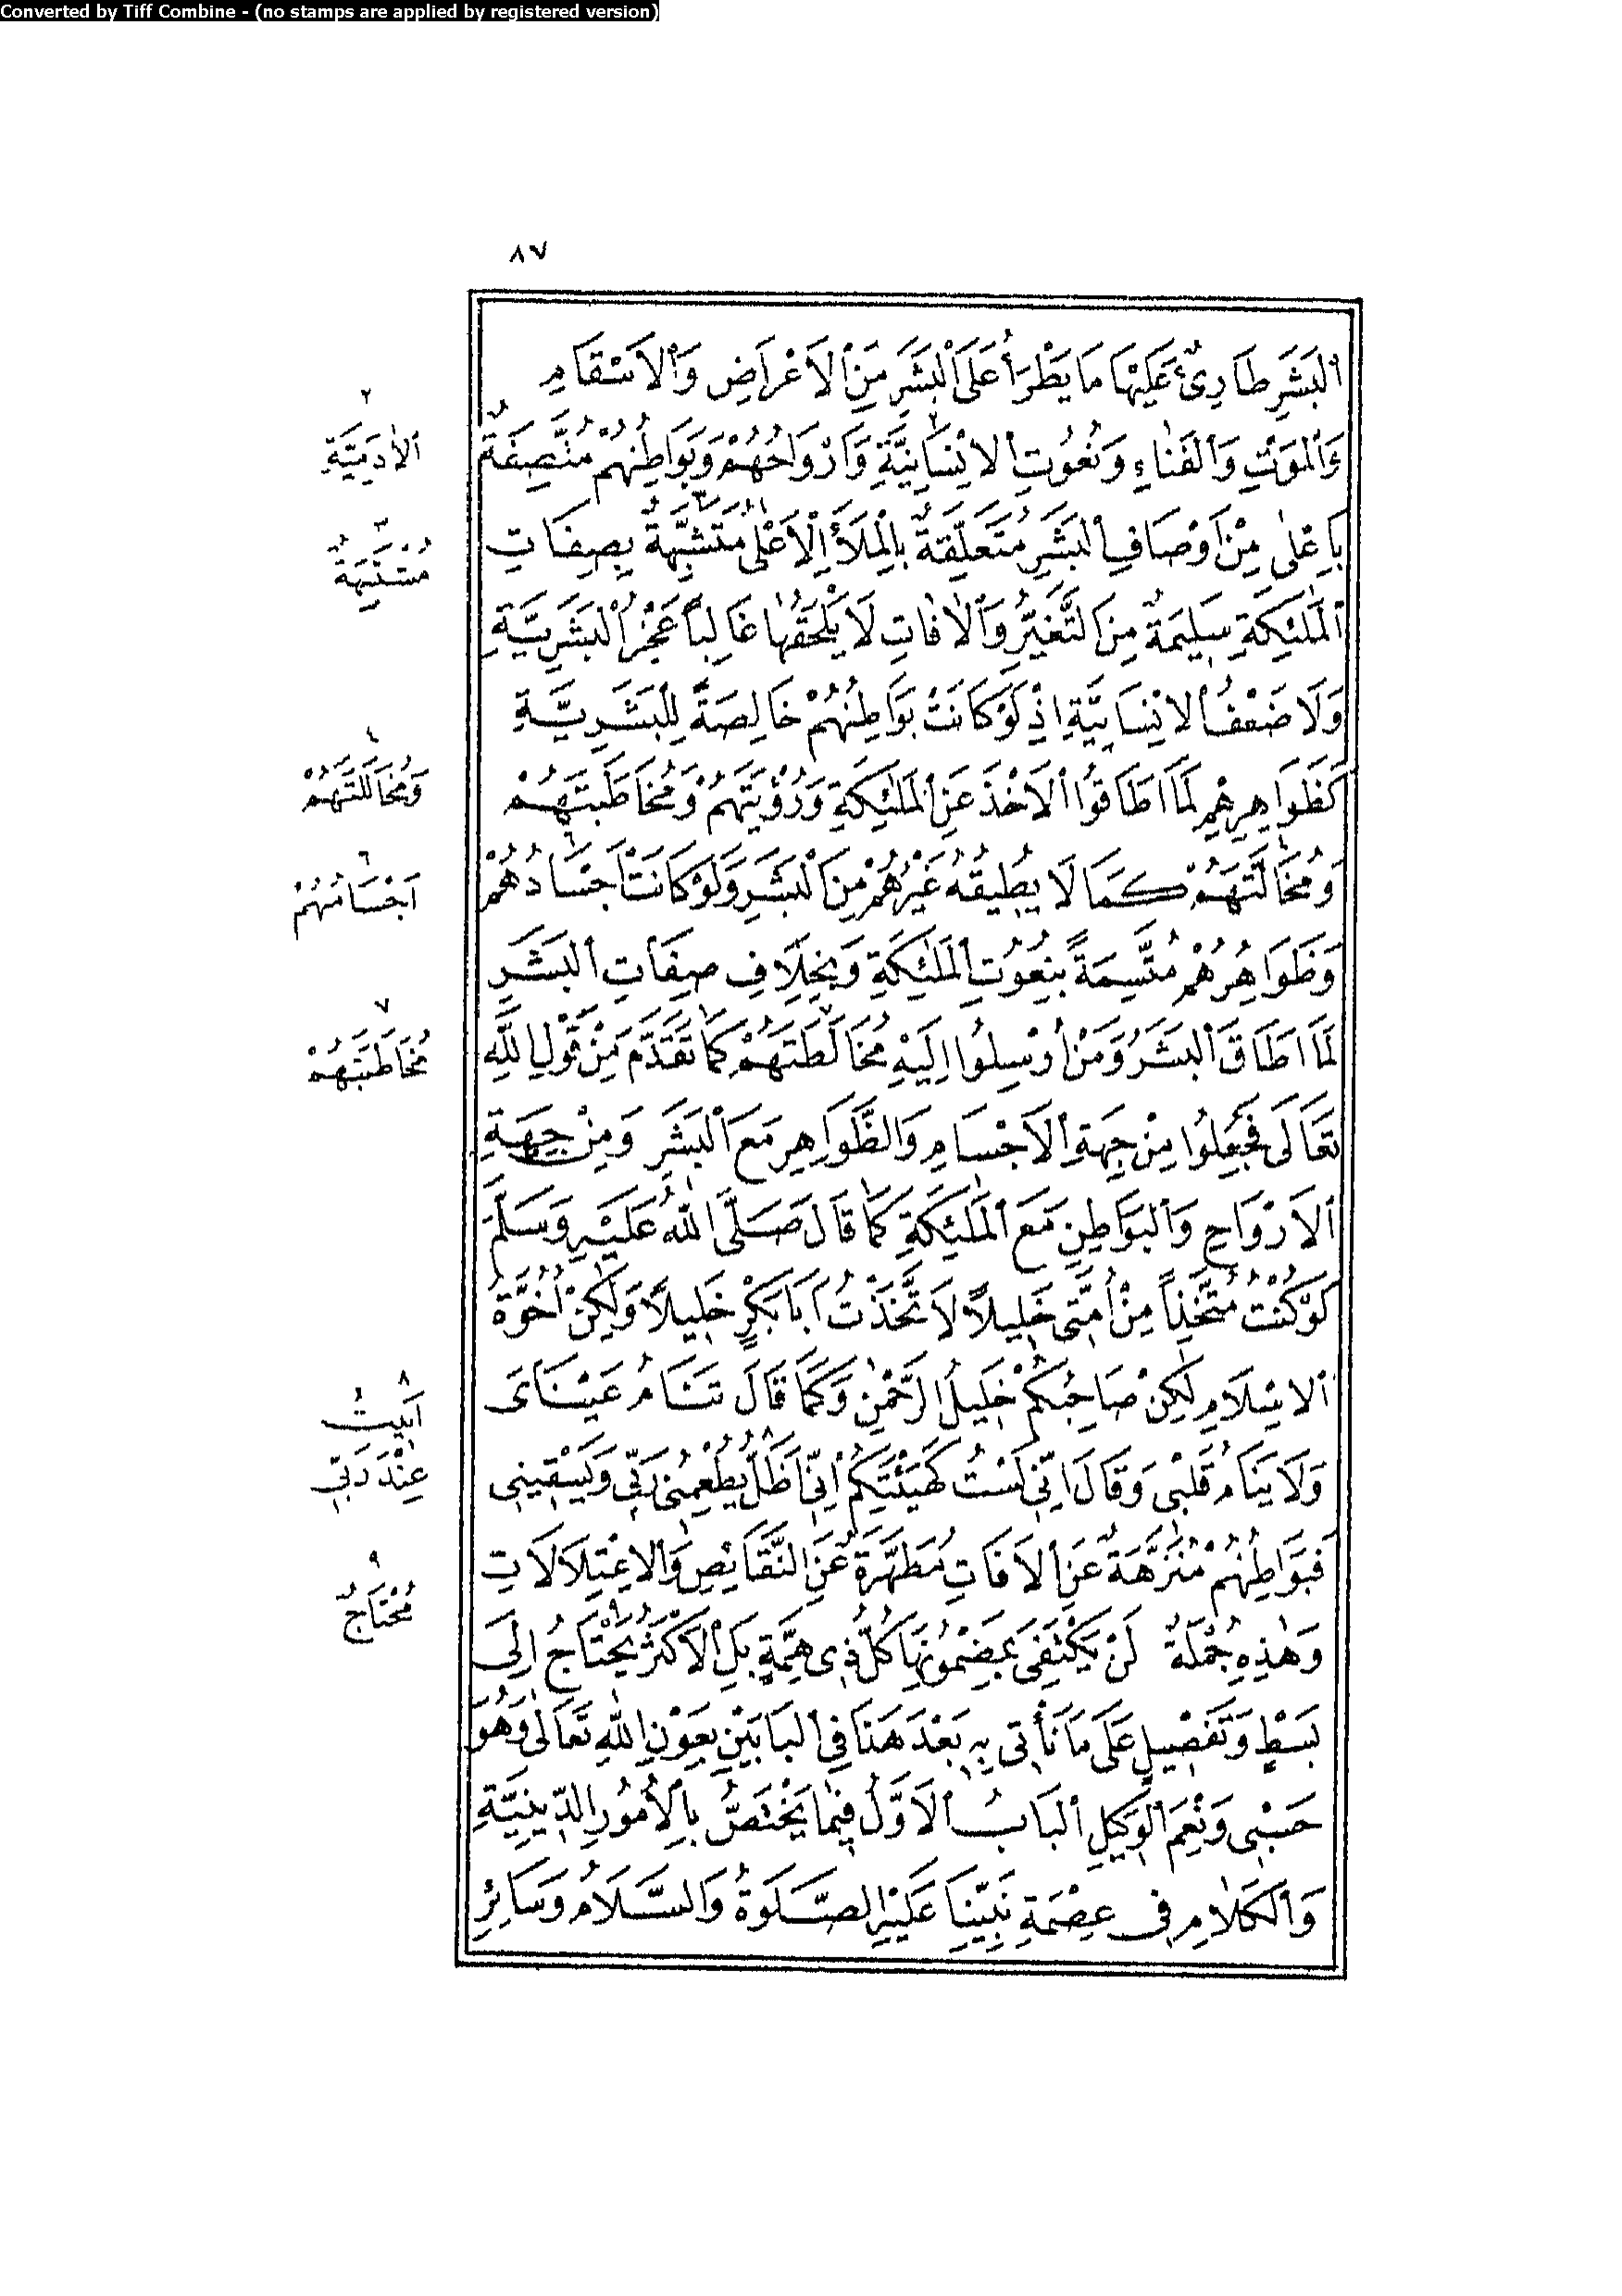 Converted by Tiff Combine - (no stamps are applied by registered version)
٨٧
اَلْبَشَرِ طَارِئٌ عَلَيْهَا مَا يَطْرَأُ عَلَى الْبَشَرِ مِنَ الْاَعْرَاضِ وَالْاَسْقَامِ
وَالْمَوْتِ وَالْفَنَاءِ وَنُعُوتِ الْاِنْسَانِيَّةِ وَاَرْوَاحُهُمْ وَبَوَاطِنُهُمْ مُتَّصِفَةٌ
بِاَعْلٰى مِنْ اَوْصَافِ الْبَشَرِ مُتَعَلِّقَةٌ بِالْمَلَأِ الْاَعْلٰى مُتَشَبِّهَةٌ بِصِفَاتِ
الْمَلٰئِكَةِ سَلِيمَةٌ مِنَ التَّغَيُّرِ وَالْاٰفَاتِ لَا يَلْحَقُهَا غَالِبًا عَجْزُ الْبَشَرِيَّةِ
وَلَا ضَعْفُ الْاِنْسَانِيَّةِ اِذْ لَوْ كَانَتْ بَوَاطِنُهُمْ خَالِصَةً لِلْبَشَرِيَّةِ
كَظَوَاهِرِهِمْ لَمَا اَطَاقُوا الْاَخْذَ عَنِ الْمَلٰئِكَةِ وَرُؤْيَتَهُمْ وَمُخَاطَبَتَهُمْ
وَمُخَالَّتَهُمْ كَمَا لَا يُطِيقُهُ غَيْرُهُمْ مِنَ الْبَشَرِ وَلَوْ كَانَتْ اَجْسَادُهُمْ
وَظَوَاهِرُهُمْ مُتَّسِمَةً بِنُعُوتِ الْمَلٰئِكَةِ وَبِخِلَافِ صِفَاتِ الْبَشَرِ
لَمَا اَطَاقَ الْبَشَرُ وَمَنْ اُرْسِلُوا اِلَيْهِ مُخَالَطَتَهُمْ كَمَا تَقَدَّمَ مِنْ قَوْلِ اللّٰهِ
تَعَالَى فَجُعِلُوا مِنْ جِهَةِ الْاَجْسَامِ وَالظَّوَاهِرِ مَعَ الْبَشَرِ وَمِنْ جِهَةِ
الْاَرْوَاحِ وَالْبَوَاطِنِ مَعَ الْمَلٰئِكَةِ كَمَا قَالَ صَلَّى اللّٰهُ عَلَيْهِ وَسَلَّمَ
لَوْ كُنْتُ مُتَّخِذًا مِنْ اُمَّتِى خَلِيلًا لَاتَّخَذْتُ اَبَا بَكْرٍ خَلِيلًا وَلٰكِنْ اُخُوَّةُ
الْاِسْلَامِ لٰكِنْ صَاحِبُكُمْ خَلِيلُ الرَّحْمٰنِ وَكَمَا قَالَ تَنَامُ عَيْنَاىَ
وَلَا يَنَامُ قَلْبِى وَقَالَ اِنِّى لَسْتُ كَهَيْئَتِكُمْ اِنِّى اَظَلُّ يُطْعِمُنِى رَبِّى وَيَسْقِينِى
فَبَوَاطِنُهُمْ مُنَزَّهَةٌ عَنِ الْاٰفَاتِ مُطَهَّرَةٌ عَنِ النَّقَائِصِ وَالْاِعْتِلَالَاتِ
وَهٰذِهِ جُمْلَةٌ لَنْ يَكْتَفِىَ بِمَضْمُونِهَا كُلُّ ذِى هِمَّةٍ بَلِ الْاَكْثَرُ يَحْتَاجُ اِلَى
بَسْطٍ وَتَفْصِيلٍ عَلَى مَا نَأْتِى بِهِ بَعْدَ هٰذَا فِى الْبَابَيْنِ بِعَوْنِ اللّٰهِ تَعَالٰى وَهُوَ
حَسْبِى وَنِعْمَ الْوَكِيلِ اَلْبَابُ الْاَوَّلُ فِيمَا يَخْتَصُّ بِالْاُمُورِ الدِّينِيَّةِ
وَالْكَلَامِ فِى عِصْمَةِ نَبِيِّنَا عَلَيْهِ الصَّلَوةُ وَالسَّلَامُ وَسَائِرِ
٢
اَلْاٰدَمِيَّةِ
٣
مُشَبَّهَةٌ
٤
وَمُخَالَلَتَهُمْ
٦
اَجْسَامُهُمْ
٧
مُخَاطَبَتَهُمْ
٨
اَبِيتُ
عِنْدَ رَبِّى
٩
مُحْتَاجٌ